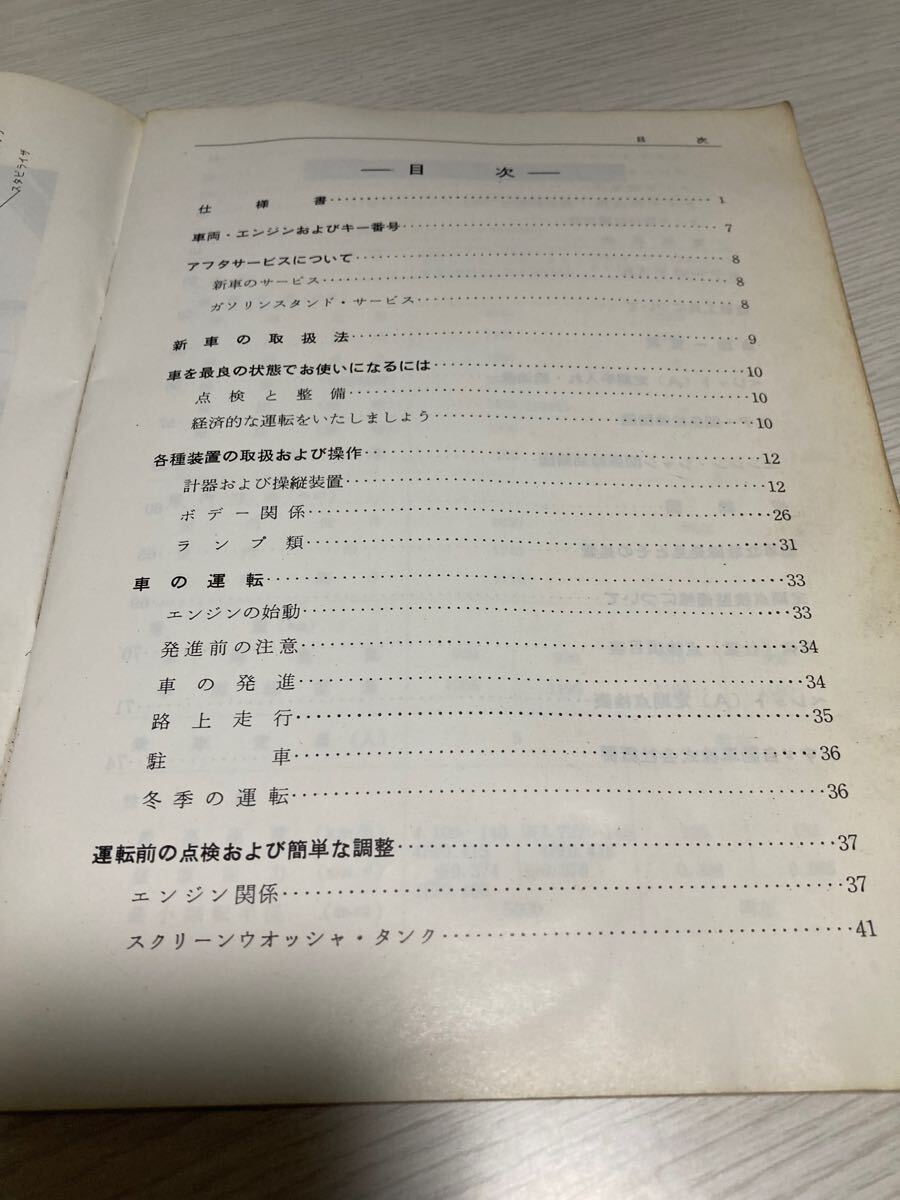 スタビライザ
目　次
— 目　次 —
仕様書……………………………1
車両・エンジンおよびキー番号……………………………7
アフタサービスについて……………………………8
新車のサービス……………………………8
ガソリンスタンド・サービス……………………………8
新車の取扱法……………………………9
車を最良の状態でお使いになるには……………………………10
点検と整備……………………………10
経済的な運転をいたしましよう……………………………10
各種装置の取扱および操作……………………………12
計器および操縦装置……………………………12
ボデー関係……………………………26
ランプ類……………………………31
車の運転……………………………33
エンジンの始動……………………………33
発進前の注意……………………………34
車の発進……………………………34
路上走行……………………………35
駐車……………………………36
冬季の運転……………………………36
運転前の点検および簡単な調整……………………………37
エンジン関係……………………………37
スクリーンウオッシャ・タンク……………………………41